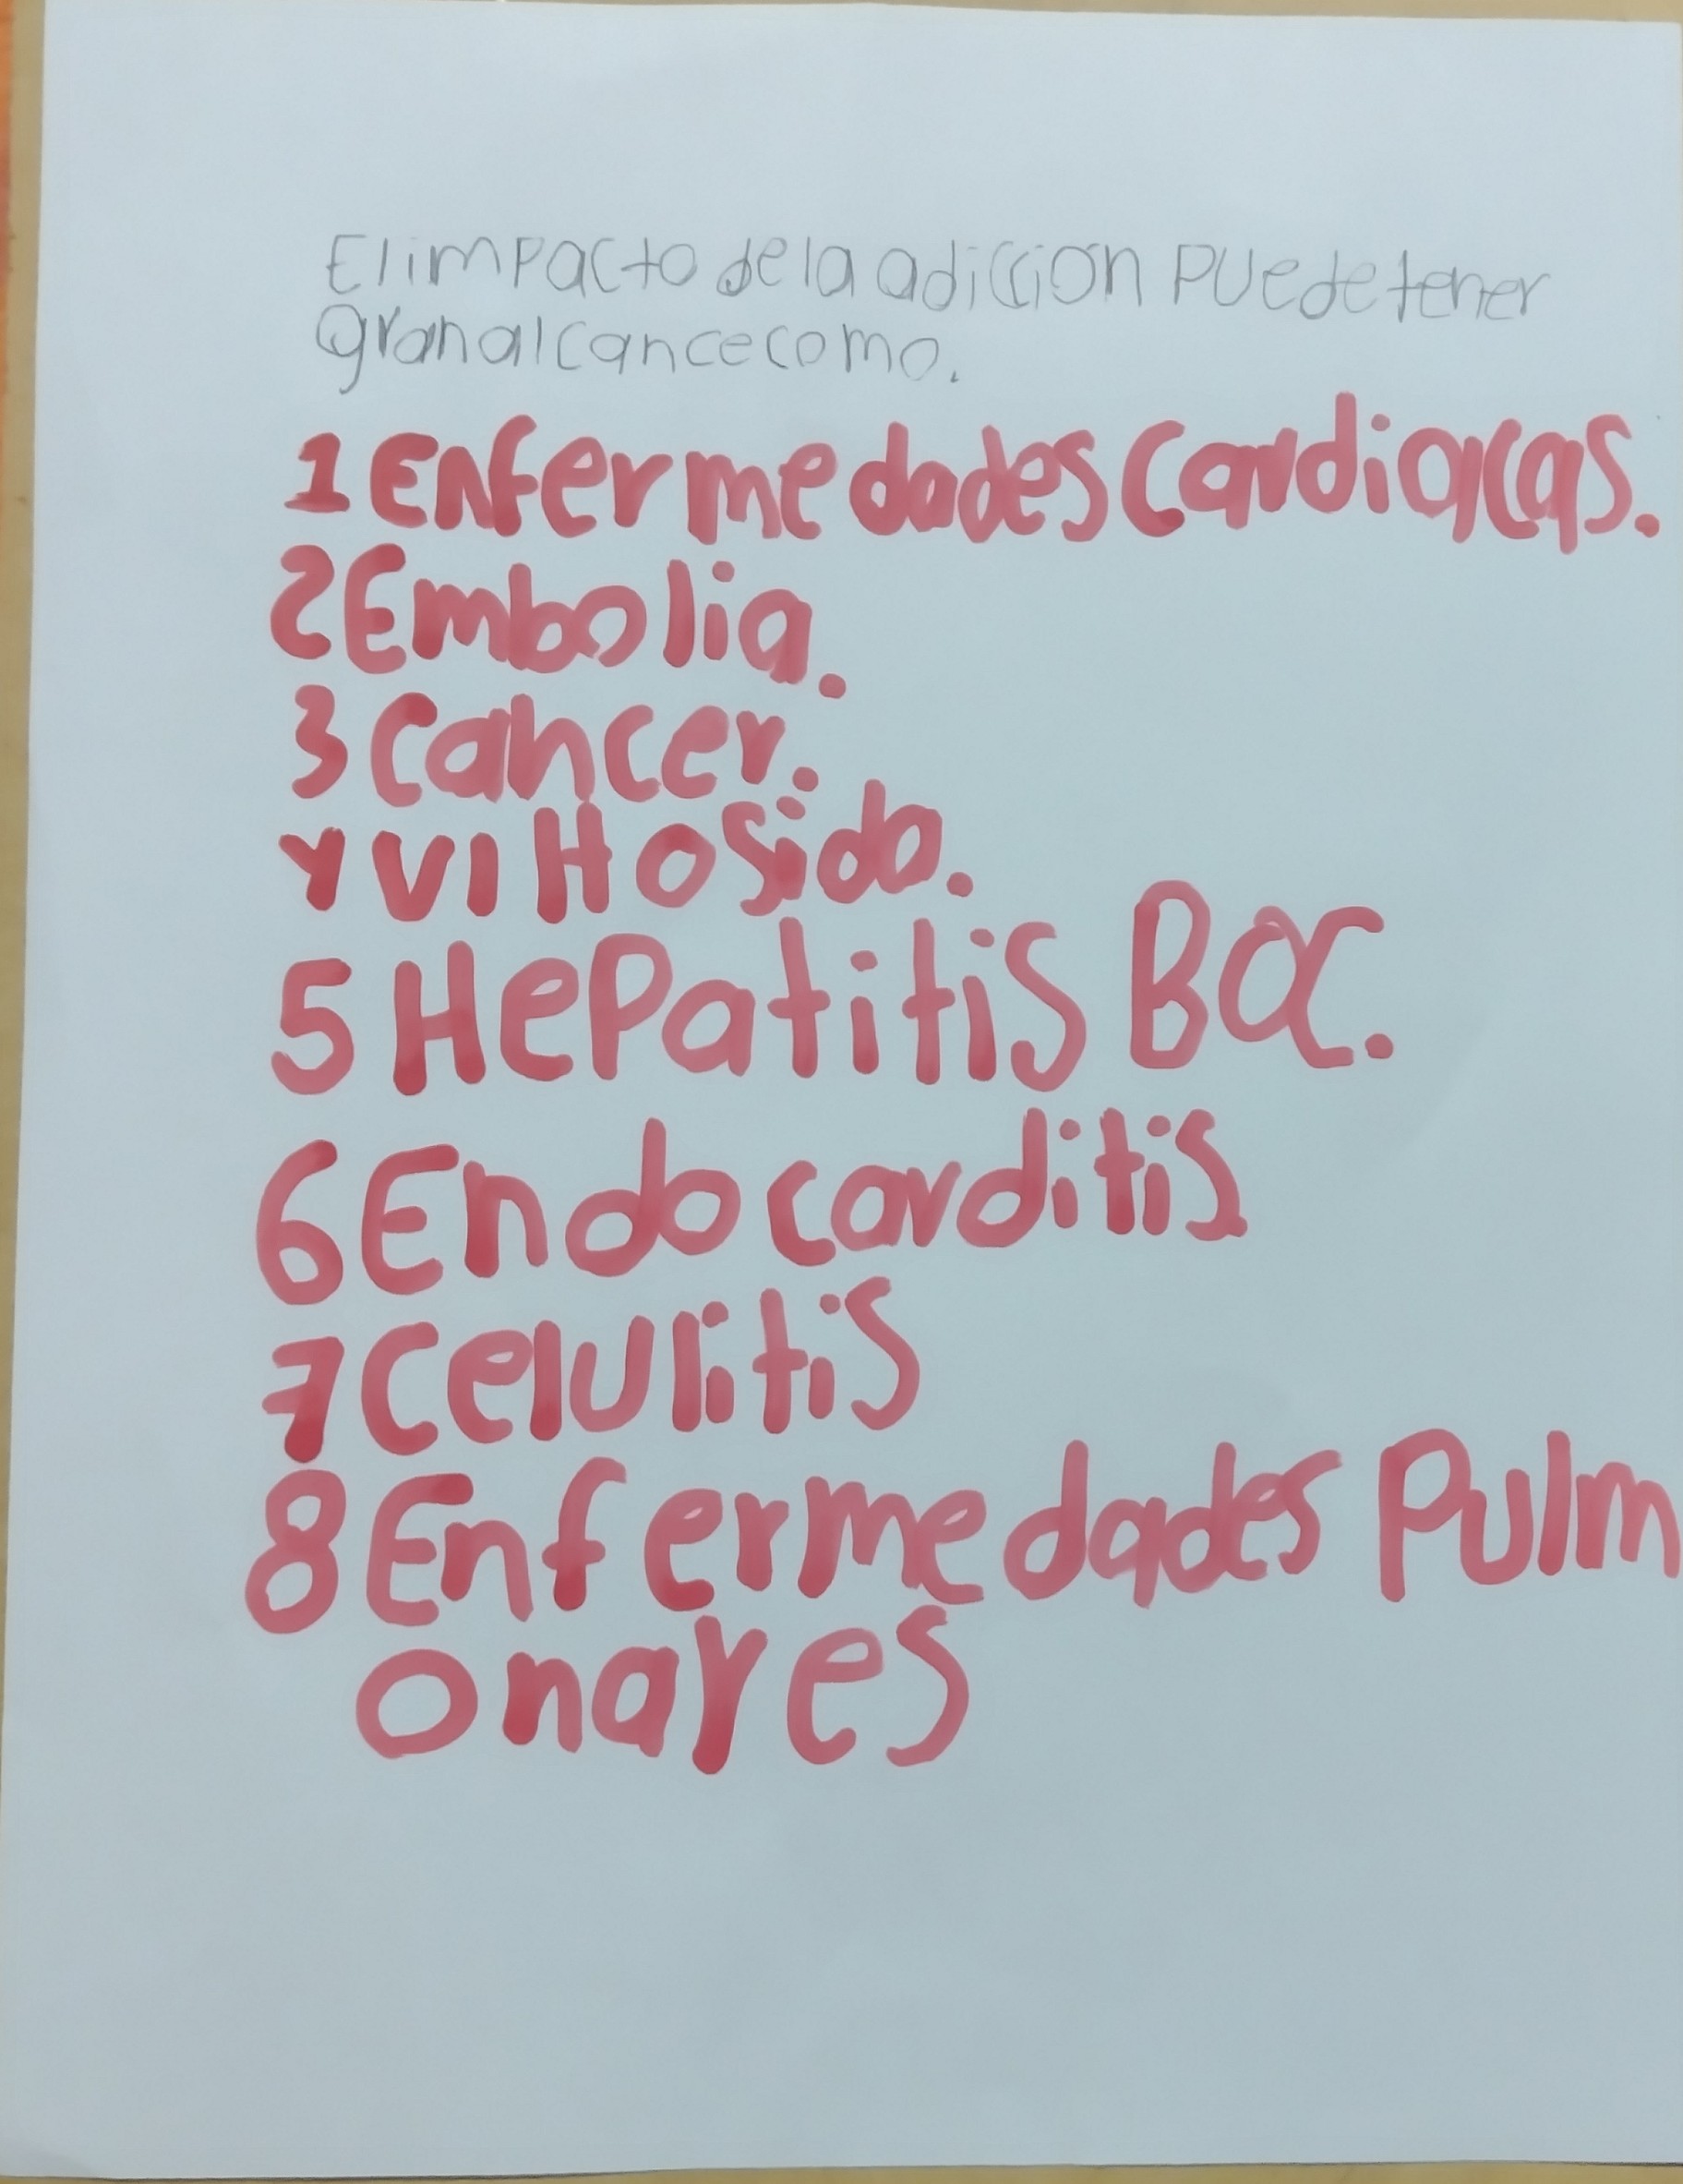 El impacto de la adicción puede tener
gran alcance como.
1 Enfermedades cardiacas.
2 Embolia.
3 cancer.
4 VIH o Sida.
5 Hepatitis B o C.
6 Endocarditis
7 Celulitis
8 Enfermedades Pulm
onares